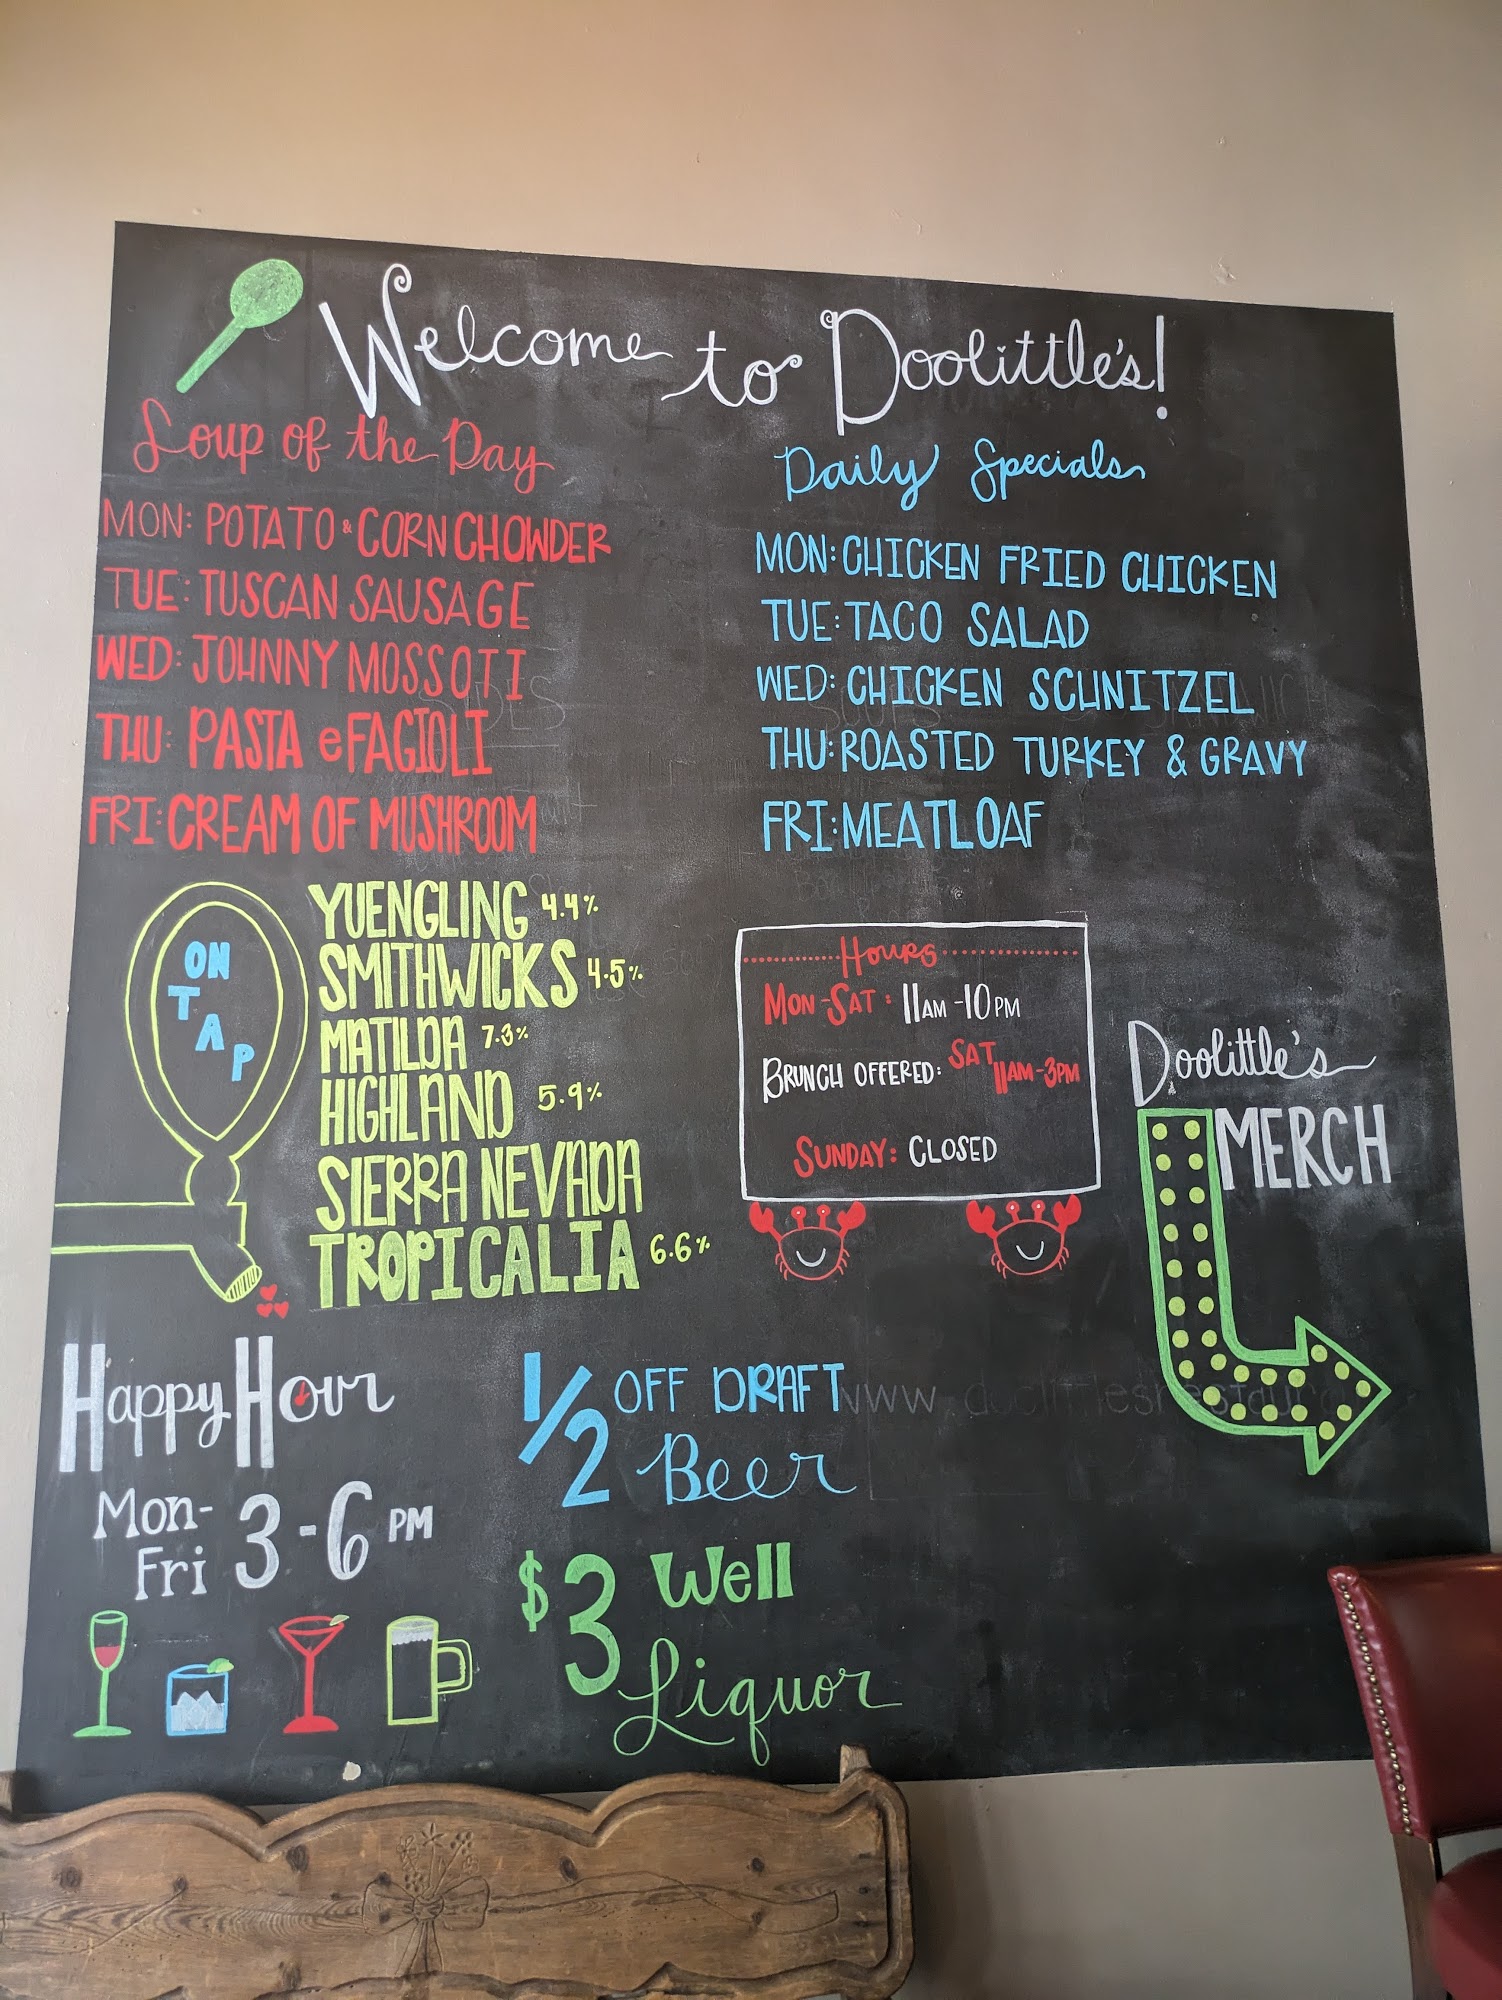 Welcome to Doolittle's!
Soup of the Day
MON: POTATO & CORN CHOWDER
TUE: TUSCAN SAUSAGE
WED: JOHNNY MOSSOTI
THU: PASTA e FAGIOLI
FRI: CREAM OF MUSHROOM
Daily Specials
MON: CHICKEN FRIED CHICKEN
TUE: TACO SALAD
WED: CHICKEN SCHNITZEL
THU: ROASTED TURKEY & GRAVY
FRI: MEATLOAF
ON
TAP
YUENGLING 4.4%
SMITHWICKS 4.5%
MATILDA 7.3%
HIGHLAND 5.9%
SIERRA NEVADA
TROPICALIA 6.6%
Hours
MON-SAT: 11AM-10PM
BRUNCH OFFERED: SAT 11AM-3PM
SUNDAY: CLOSED
Doolittle's
MERCH
Happy Hour
Mon-
Fri 3-6 PM
1/2 OFF DRAFT
Beer
$3 Well
Liquor